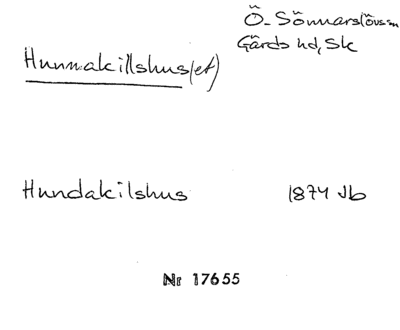 Ö. Sönnarslövs sn
Gärds hd, Sk
Hunnakillshus(et)
Hundakilshus 1874 Jb
Nr 17655